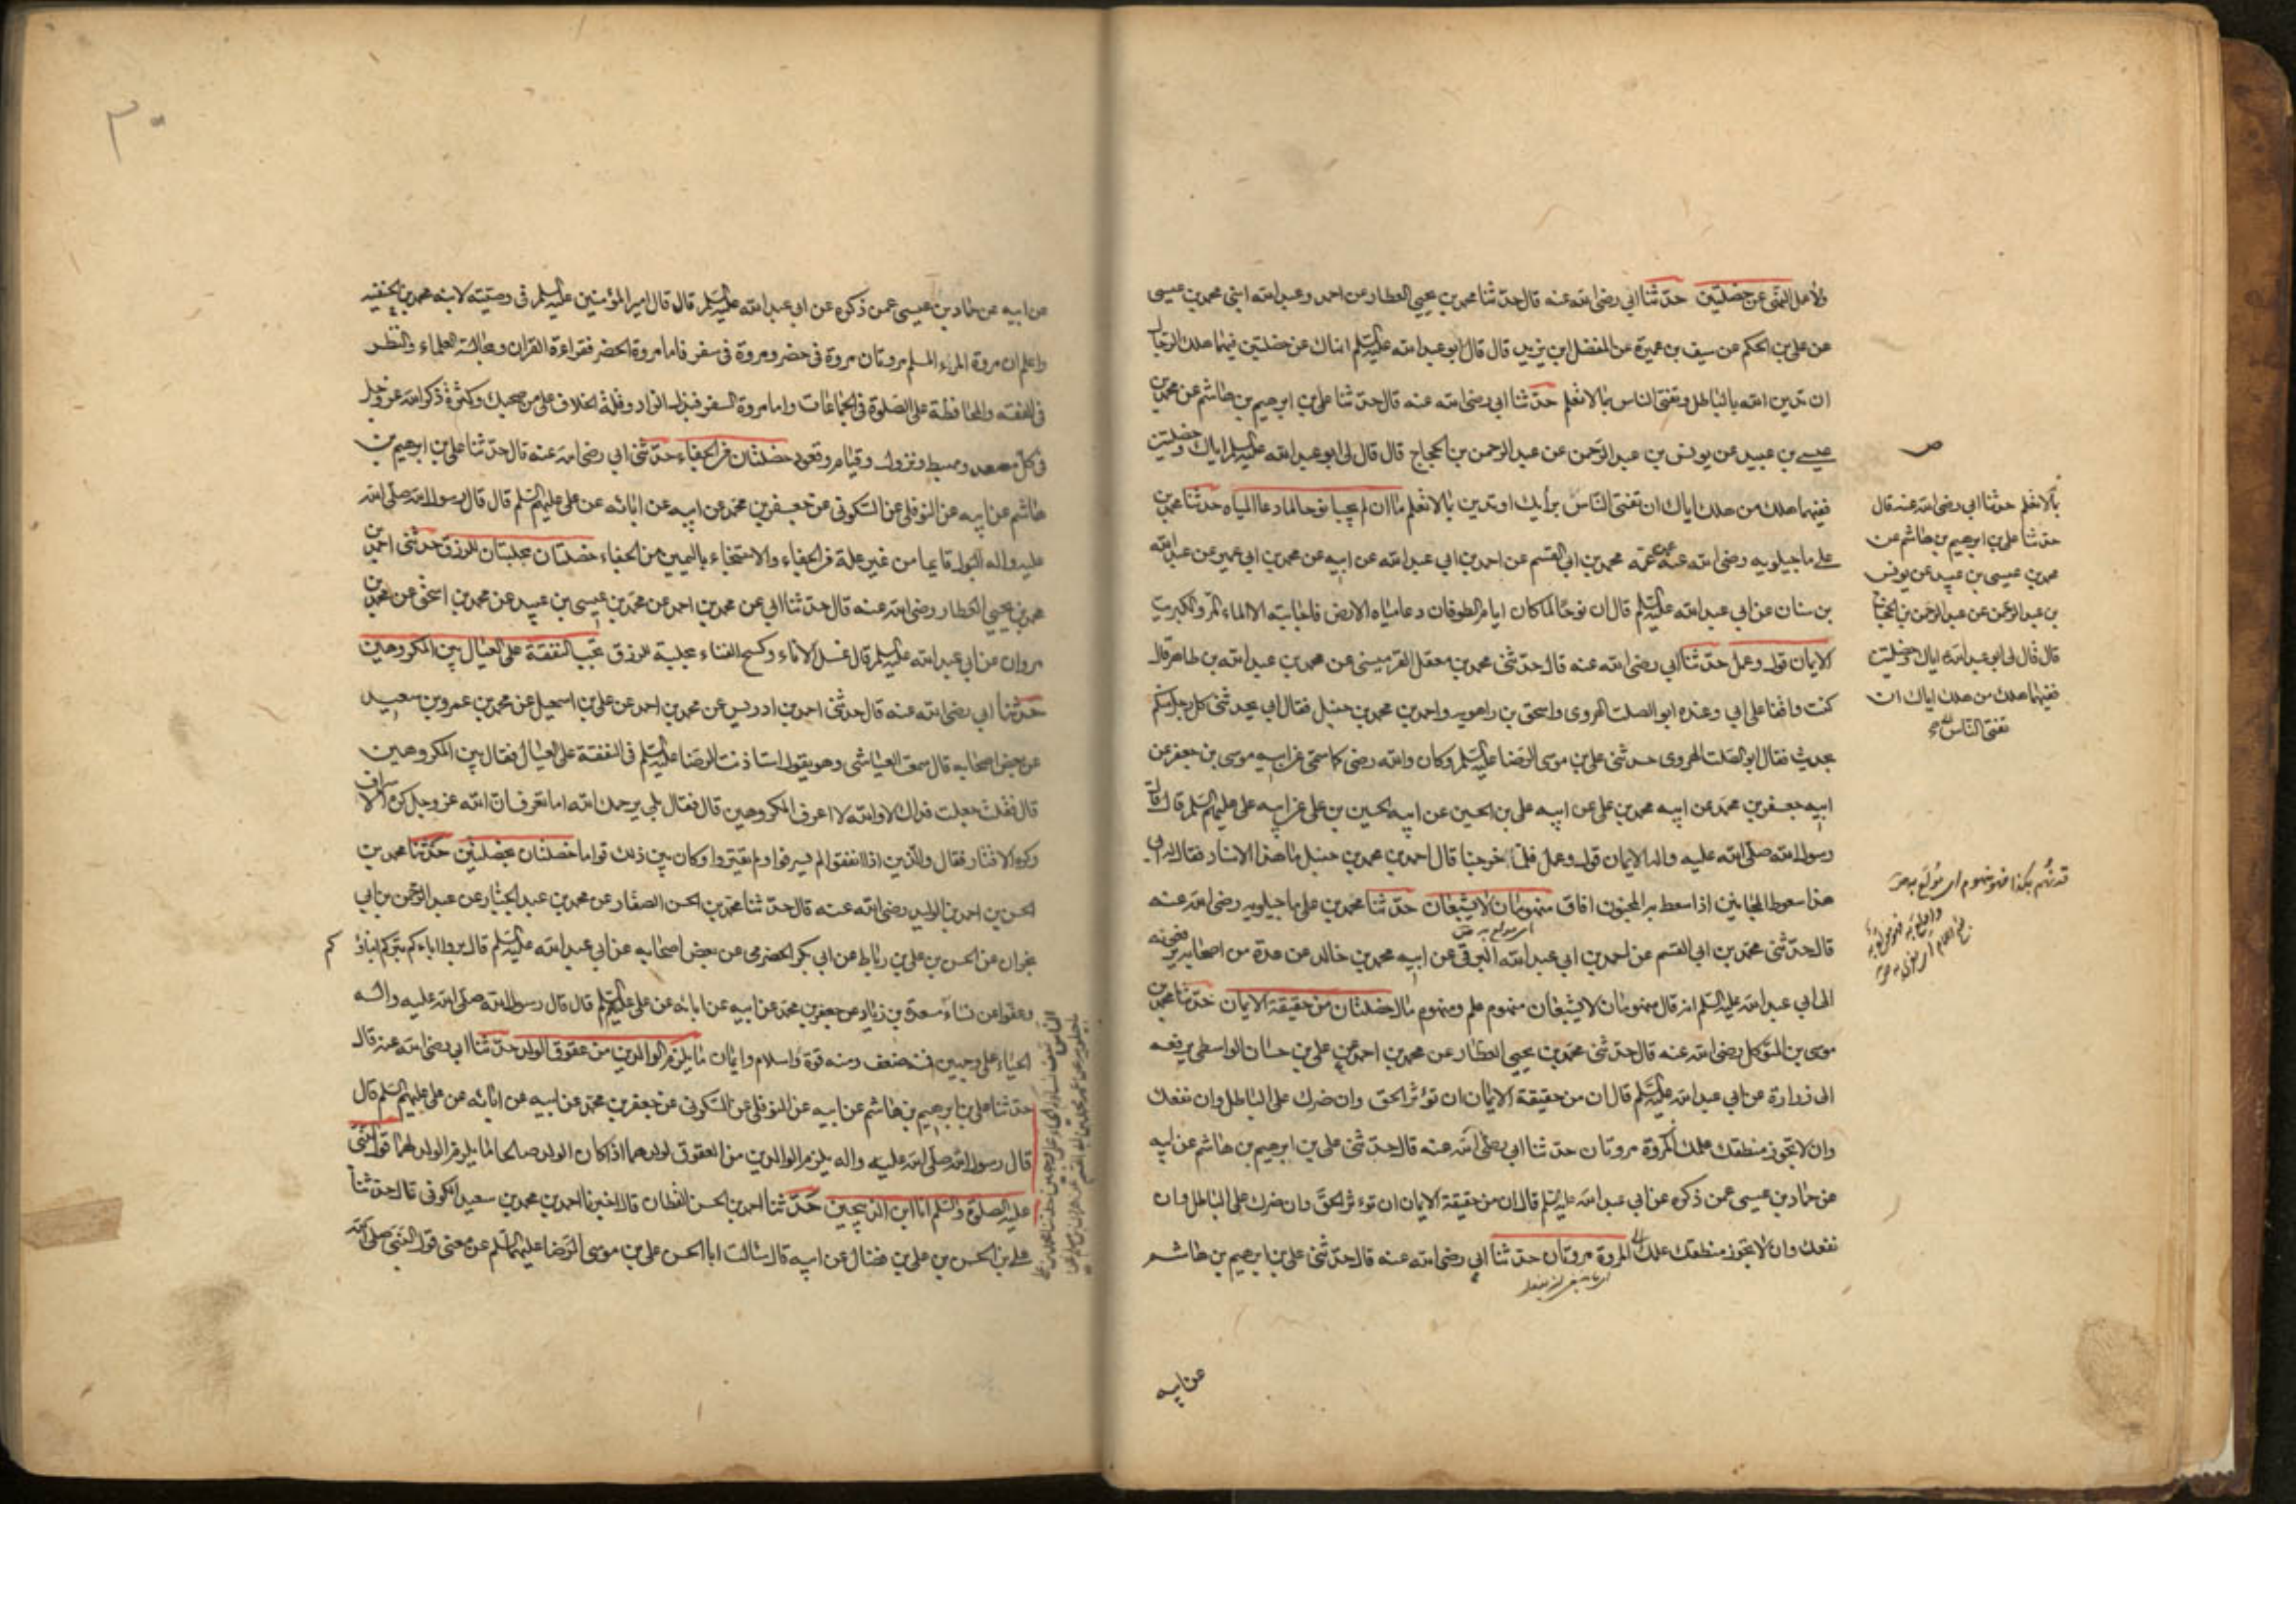 ولأهل النهى عن خصلتين حدثنا ابي رضى الله عنه قال حدثنا محمد بن يحيى العطار عن احمد وعبد الله ابنى محمد بن عيسى
عن على بن الحكم عن سيف بن عميرة عن المفضل ابن يزيد قال قال ابو عبد الله عليه السلم انهاك عن خصلتين فيهما هلك الرجال
ان تدين الله بالباطل وتفتى الناس بما لا تعلم حدثنا ابي رضى الله عنه قال حدثنا على بن ابرهيم بن هاشم عن محمد بن
عيسى بن عبيد عن يونس بن عبد الرحمن عن عبد الرحمن بن الحجاج قال قال لى ابو عبد الله عليه السلم اياك وخصلتين
ففيهما هلك من هلك اياك ان تفتى الناس برأيك او تدين بما لا تعلم ما ان لم يجيبا نوحا لما دعا المياه حدثنا محمد بن
على ماجيلويه رضى الله عنه عن عمه محمد بن ابي القسم عن احمد بن ابي عبد الله عن ابيه عن محمد بن ابي عمير عن عبد الله
بن سنان عن ابي عبد الله عليه السلم قال ان نوحا لما كان ايام الطوفان دعا مياه الارض فاجابته الا الماء المر والكبريت
الايمان قول وعمل حدثنا ابي رضى الله عنه قال حدثنى محمد بن معقل القرميسنى عن محمد بن عبد الله بن طاهر قال
كنت واقفا على ابي وعنده ابو الصلت الهروى واسحق بن راهويه واحمد بن محمد بن حنبل فقال ابي يحدثنى كل رجل منكم
بحديث فقال ابو الصلت الهروى حدثنى على بن موسى الرضا عليه السلم وكان والله رضى كما سمى عن ابيه موسى بن جعفر عن
ابيه جعفر بن محمد عن ابيه محمد بن على عن ابيه على بن الحسين عن ابيه الحسين بن على عن ابيه على عليهم السلم قال قال
رسول الله صلى الله عليه واله الايمان قول وعمل فلما خرجنا قال احمد بن محمد بن حنبل ما هذا الاسناد فقال له ابي
هذا سعوط المجانين اذا سعط به المجنون افاق منهومان لا يشبعان حدثنا محمد بن على ماجيلويه رضى الله عنه
قال حدثنى محمد بن ابي القسم عن احمد بن ابي عبد الله البرقى عن ابيه محمد بن خالد عن عدة من اصحابه يرفعونه
الى ابي عبد الله عليه السلم انه قال منهومان لا يشبعان منهوم علم ومنهوم مال خصلتان من حقيقة الايمان حدثنا محمد بن
موسى بن المتوكل رضى الله عنه قال حدثنى محمد بن يحيى العطار عن محمد بن احمد عن على بن حسان الواسطى يرفعه
الى زرارة عن ابي عبد الله عليه السلم قال ان من حقيقة الايمان ان تؤثر الحق وان ضرك على الباطل وان نفعك
وان لا يجوز منطقك علمك المروة مروتان حدثنا ابي رضى الله عنه قال حدثنى على بن ابرهيم بن هاشم عن ابيه
عن حماد بن عيسى عمن ذكره عن ابي عبد الله عليه السلم قال ان من حقيقة الايمان ان تؤثر الحق وان ضرك على الباطل وان
نفعك وان لا يجوز منطقك علمك المروة مروتان حدثنا ابي رضى الله عنه قال حدثنى على بن ابرهيم بن هاشم
عن ابيه
بما لا تعلم حدثنا ابي رضى الله عنه قال
حدثنا على بن ابرهيم بن هاشم عن
محمد بن عيسى بن عبيد عن يونس
بن عبد الرحمن عن عبد الرحمن بن الحجاج
قال قال لى ابو عبد الله اياك وخصلتين
ففيهما هلك من هلك اياك ان
تفتى الناس
قد نهم بكذا فهو منهوم اى مولع به
٣٠
عن ابيه عن حماد بن عيسى عمن ذكره عن ابي عبد الله عليه السلم قال قال امير المؤمنين عليه السلم فى وصيته لابنه محمد بن الحنفيه
واعلم ان مروة المرء المسلم مروتان مروة فى حضر ومروة فى سفر فاما مروة الحضر فقراءة القران ومجالسة العلماء والنظر
فى الفقه والمحافظة على الصلوة فى الجماعات واما مروة السفر فبذل الزاد وقلة الخلاف على من صحبك وكثرة ذكر الله عز وجل
فى كل مصعد ومهبط ونزول وقيام وقعود خصلتان من الجفاء حدثنى ابي رضى الله عنه قال حدثنا على بن ابرهيم بن
هاشم عن ابيه عن النوفلى عن السكونى عن جعفر بن محمد عن ابيه عن ابائه عن على عليهم السلم قال قال رسول الله صلى الله
عليه واله البول قايما من غير علة من الجفاء والاستنجاء باليمين من الجفاء خصلتان مجلبتان للرزق حدثنى احمد بن
محمد بن يحيى العطار رضى الله عنه قال حدثنا ابي عن محمد بن احمد عن محمد بن عيسى بن عبيد عن محمد بن اسحق عن محمد بن
مروان عن ابي عبد الله عليه السلم قال غسل الاناء وكسح الفناء مجلبة للرزق تجب النفقة على العيال بين المكروهين
حدثنا ابي رضى الله عنه قال حدثنى احمد بن ادريس عن محمد بن احمد عن على بن اسمعيل عن محمد بن عمرو بن سعيد
عن بعض اصحابه قال سمعت العياشى وهو يقول استاذنت الرضا عليه السلم فى النفقة على العيال فقال بين المكروهين
قال فقلت جعلت فداك لا والله لا اعرف المكروهين قال فقال بلى يرحمك الله اما تعرف ان الله عز وجل كره الاسراف
وكره الاقتار فقال والذين اذا انفقوا لم يسرفوا ولم يقتروا وكان بين ذلك قواما خصلتان بخصلتين حدثنا محمد بن
الحسن بن احمد بن الوليد رضى الله عنه قال حدثنا محمد بن الحسن الصفار عن محمد بن عبد الجبار عن عبد الرحمن بن ابي
نجران عن الحسن بن على بن رباط عن ابي بكر الحضرمى عن بعض اصحابه عن ابي عبد الله عليه السلم قال بروا اباءكم يبركم ابناؤكم
وعفوا عن نساء مسعدة بن زياد عن جعفر بن محمد عن ابيه عن ابائه عن على عليهم السلم قال قال رسول الله صلى الله عليه واله
الحياء على وجهين فمنه ضعف ومنه قوة واسلام وايمان ما يلزم الوالدين من عقوق الولد حدثنا ابي رضى الله عنه قال
حدثنا على بن ابرهيم بن هاشم عن ابيه عن النوفلى عن السكونى عن جعفر بن محمد عن ابيه عن ابائه عن على عليهم السلم قال
قال رسول الله صلى الله عليه واله يلزم الوالدين من العقوق لولدهما اذا كان الولد صالحا ما يلزم الولد لهما قول النبى
عليه الصلوة والسلم انا ابن الذبيحين حدثنا احمد بن الحسن القطان قال اخبرنا احمد بن محمد بن سعيد الكوفى قال حدثنا
على بن الحسن بن على بن فضال عن ابيه قال سالت ابا الحسن على بن موسى الرضا عليهما السلم عن معنى قول النبى صلى الله